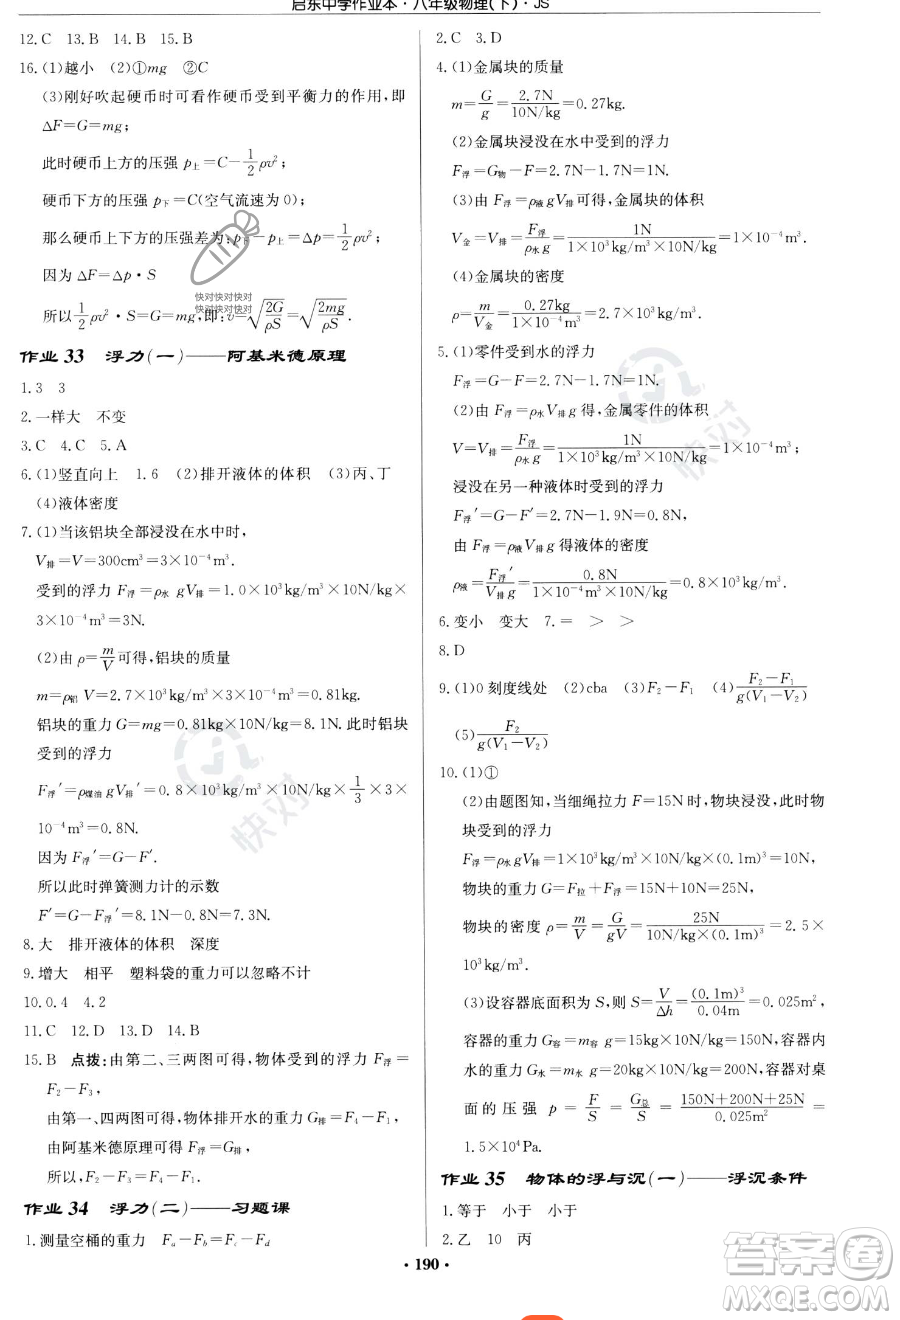 启东中学作业本·八年级物理(下)·JS
12.C  13.B  14.B  15.B
16.(1)越小  (2)①mg  ②C
(3)刚好吹起硬币时可看作硬币受到平衡力的作用,即
ΔF=G=mg;
此时硬币上方的压强 p上=C-1/2ρv²;
硬币下方的压强 p下=C(空气流速为0);
那么硬币上下方的压强差为:p下-p上=Δp=1/2ρv²;
因为 ΔF=Δp·S
所以 1/2ρv²·S=G=mg,即:v=√(2G/ρS)=√(2mg/ρS).
作业 33  浮力(一)——阿基米德原理
1.3  3
2.一样大  不变
3.C  4.C  5.A
6.(1)竖直向上  1.6  (2)排开液体的体积  (3)丙、丁
(4)液体密度
7.(1)当该铝块全部浸没在水中时,
V排=V=300cm³=3×10⁻⁴m³
受到的浮力 F浮=ρ水 gV排=1.0×10³kg/m³×10N/kg×
3×10⁻⁴m³=3N.
(2)由 ρ=m/V可得,铝块的质量
m=ρ铝 V=2.7×10³kg/m³×3×10⁻⁴m³=0.81kg.
铝块的重力 G=mg=0.81kg×10N/kg=8.1N.此时铝块
受到的浮力
F浮′=ρ煤油 gV排=0.8×10³kg/m³×10N/kg×1/3×3×
10⁻⁴m³=0.8N.
因为 F浮′=G-F′.
所以此时弹簧测力计的示数
F′=G-F浮′=8.1N-0.8N=7.3N.
8.大  排开液体的体积  深度
9.增大  相平  塑料袋的重力可以忽略不计
10.0.4  4.2
11.C  12.D  13.D  14.B
15.B  点拨:由第二、三两图可得,物体受到的浮力 F浮=
F₂-F₃,
由第一、四两图可得,物体排开水的重力 G排=F₄-F₁,
由阿基米德原理可得 F浮=G排,
所以,F₂-F₃=F₄-F₁.
作业 34  浮力(二)——习题课
1.测量空桶的重力  Fa-Fb=Fd-Fc
2.C  3.D
4.(1)金属块的质量
m=G/g=2.7N/10N/kg=0.27kg.
(2)金属块浸没在水中受到的浮力
F浮=G物-F=2.7N-1.7N=1N.
(3)由 F浮=ρ液gV排可得,金属块的体积
V金=V排=F浮/ρ水g=1N/1×10³kg/m³×10N/kg=1×10⁻⁴m³.
(4)金属块的密度
ρ=m/V金=0.27kg/1×10⁻⁴m³=2.7×10³kg/m³.
5.(1)零件受到水的浮力
F浮=G-F=2.7N-1.7N=1N.
(2)由 F浮=ρ水V排g 得,金属零件的体积
V=V排=F浮/ρ水g=1N/1×10³kg/m³×10N/kg=1×10⁻⁴m³.
浸没在另一种液体时受到的浮力
F浮′=G-F′=2.7N-1.9N=0.8N,
由 F浮=ρ液V排g 得液体的密度
ρ液=F浮′/V排g=0.8N/1×10⁻⁴m³×10N/kg=0.8×10³kg/m³.
6.变小  变大  7.=  >  >
8.D
9.(1)0刻度线处  (2)cba  (3)F₂-F₁  (4)F₂-F₁/g(V₁-V₂)
(5)F₂/g(V₁-V₂)
10.(1)①
(2)由题图知,当细绳拉力 F=15N时,物块浸没,此时物
块受到的浮力
F浮=ρ水gV排=1×10³kg/m³×10N/kg×(0.1m)³=10N,
物块的重力 G=F拉+F浮=15N+10N=25N,
物块的密度 ρ=m/V=G/gV=25N/10N/kg×(0.1m)³=2.5×
10³kg/m³.
(3)设容器底面积为 S,则 S=V/Δh=(0.1m)³/0.04m=0.025m²,
容器的重力 G容=m容g=15kg×10N/kg=150N,
水的重力 G水=m水g=20kg×10N/kg=200N,容器对桌
面的压强 p=F/S=G总/S=150N+200N+25N/0.025m²=
1.5×10⁴Pa.
作业 35  物体的浮与沉(一)——浮沉条件
1.等于  小于  小于
2.乙  10  丙
·190·
快对快对快对
快对快对快对
快对
快对
作业帮